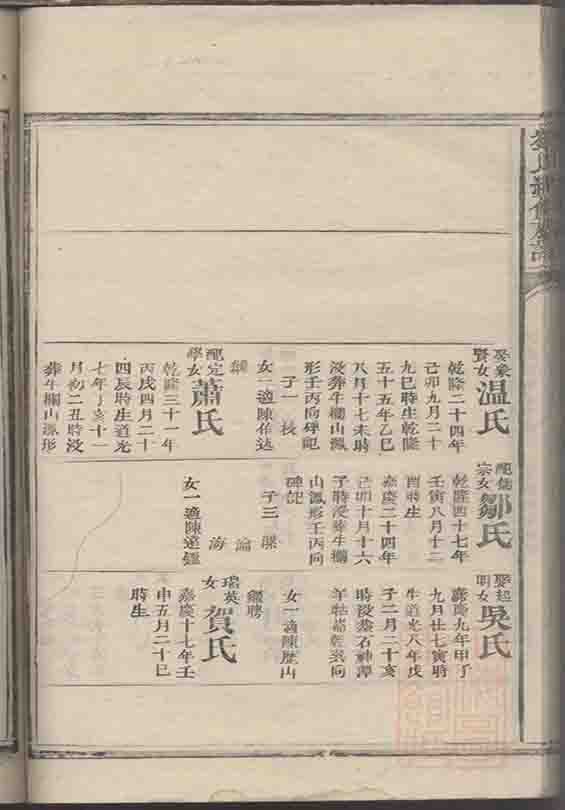 娶象
賢女
温氏
乾隆二十四年
己卯九月二十
九巳時生乾隆
五十五年乙巳
八月十七未時
歿葬牛欄山鳳
形壬丙向碑記
子一 
女一適陳作达
配定
學女
蕭氏
乾隆三十一年
丙戌四月二十
四辰時生道光
七年丁亥十一
月初二丑時歿
葬牛欄山鳳形
配
宗女
鄒氏
乾隆四十七年
壬寅八月十二
酉時生
嘉慶二十四年
己卯十月十六
子時歿葬牛欄
山鳳形壬丙向
碑記
子三
論
海
女一適陳達
娶起
明女
吳氏
嘉慶九年甲子
九月廿七寅時
生道光八年戊
子二月二十亥
時歿葬石神潭
向
女一適陳歷山
繼聘
瑞英
女
賀氏
嘉慶十七年壬
申五月二十巳
時生